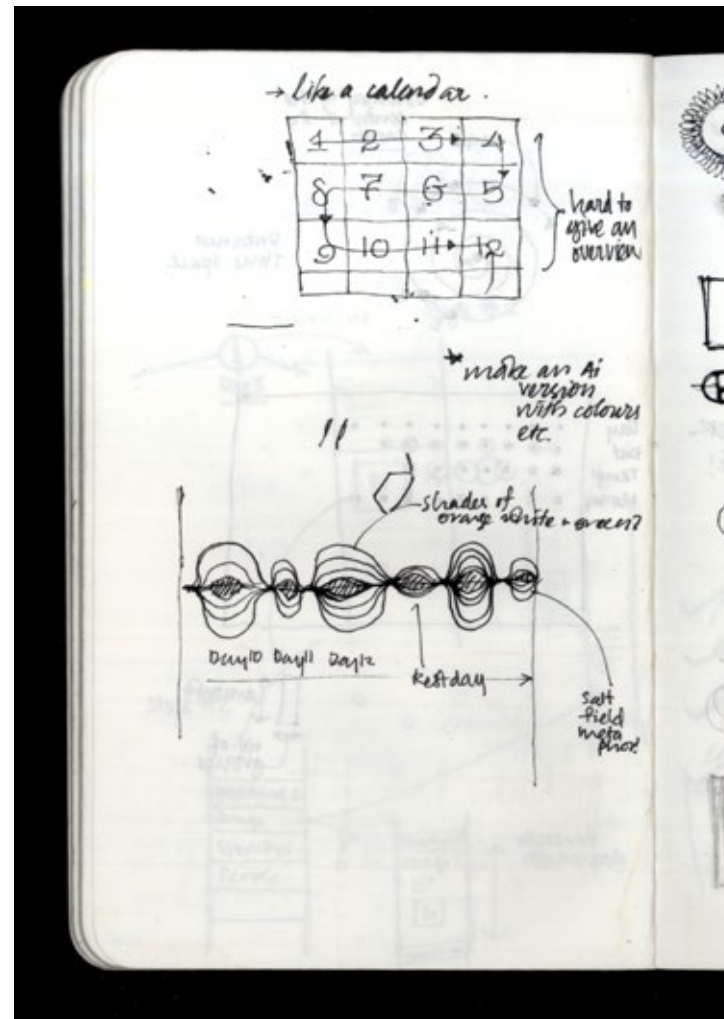 → like a calendar.
1 2 3 4
8 7 6 5
9 10 11 12
hard to
give an
overview
* make an Ai
version
with colours
etc.
!!
shades of
orange white + green?
Day10 Day11 Day12
Restday
Salt
field
meta
phor!